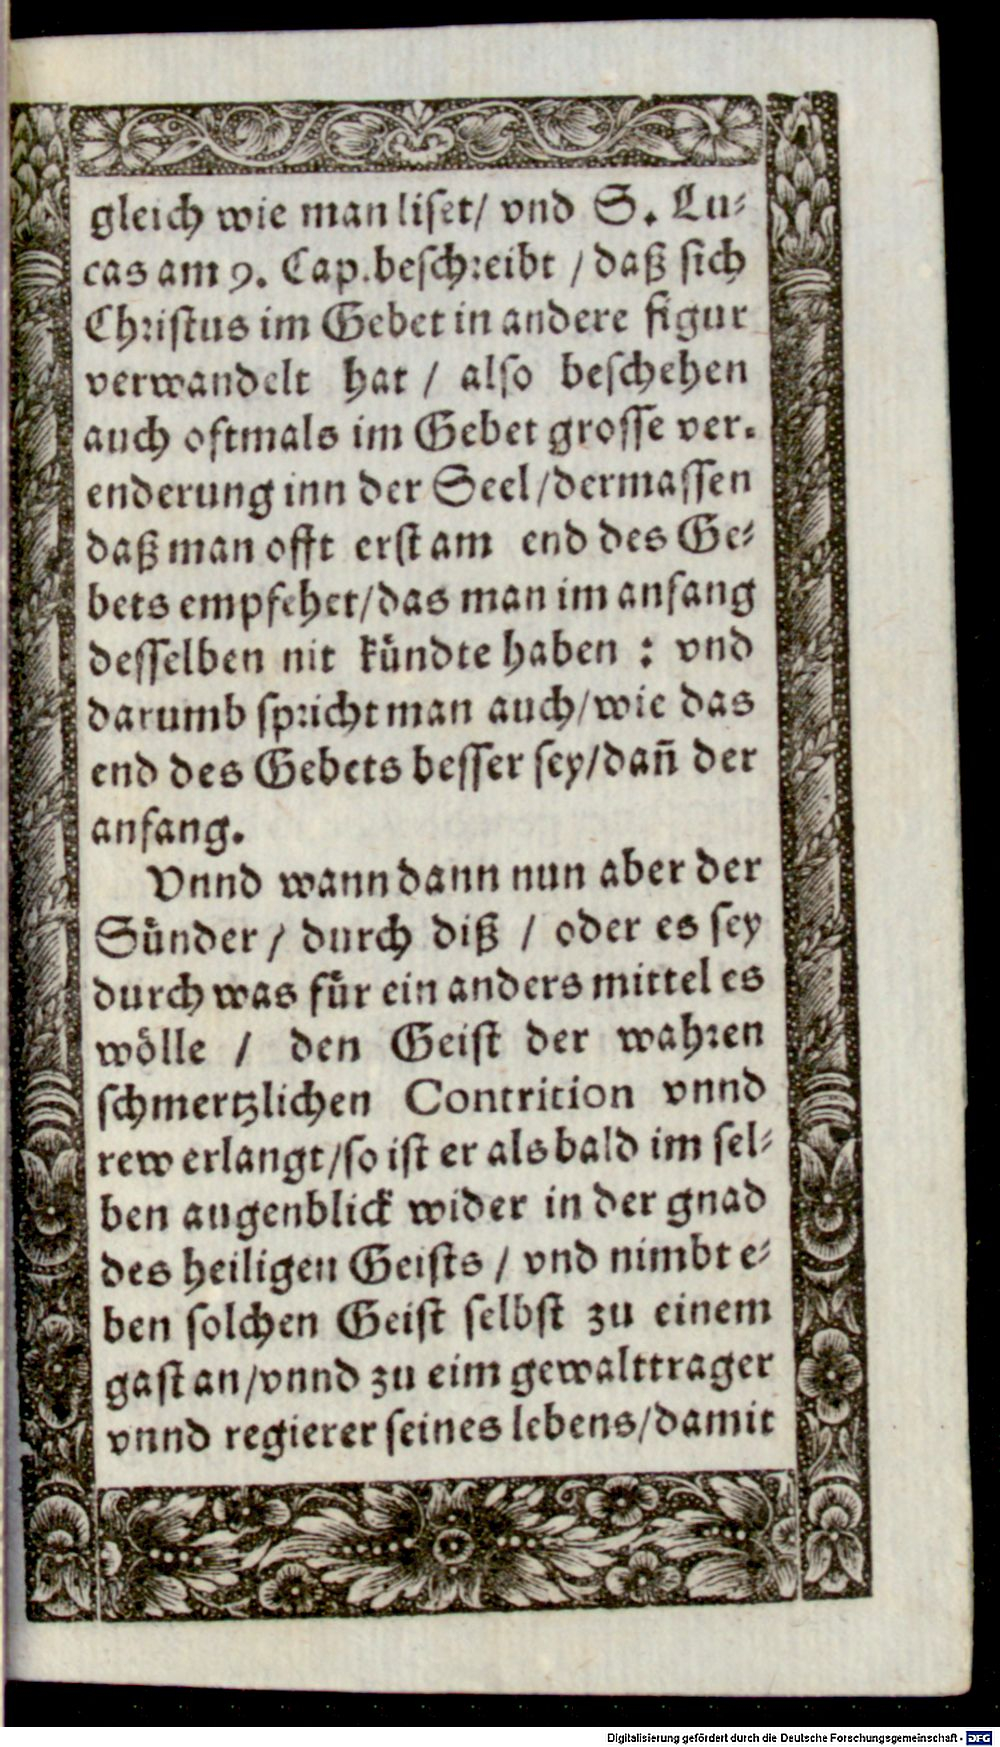 gleich wie man liset/ vnd S. Lu⸗
cas am 9. Cap. beschreibt / daß sich
Christus im Gebet in andere figur
verwandelt hat / also beschehen
auch oftmals im Gebet grosse ver⸗
enderung inn der Seel/dermassen
daß man offt erst am end des Ge⸗
bets empfehet/das man im anfang
desselben nit kündte haben : vnd
darumb spricht man auch/wie das
end des Gebets besser sey/dañ der
anfang.
Vnnd wann dann nun aber der
Sünder / durch diß / oder es sey
durch was für ein anders mittel es
wölle / den Geist der wahren
schmertzlichen Contrition vnnd
rew erlangt/so ist er als bald im sel⸗
ben augenblick wider in der gnad
des heiligen Geists / vnd nimbt e⸗
ben solchen Geist selbst zu einem
gast an/vnnd zu eim gewalttrager
vnnd regierer seines lebens/damit
Digitalisierung gefördert durch die Deutsche Forschungsgemeinschaft - DFG